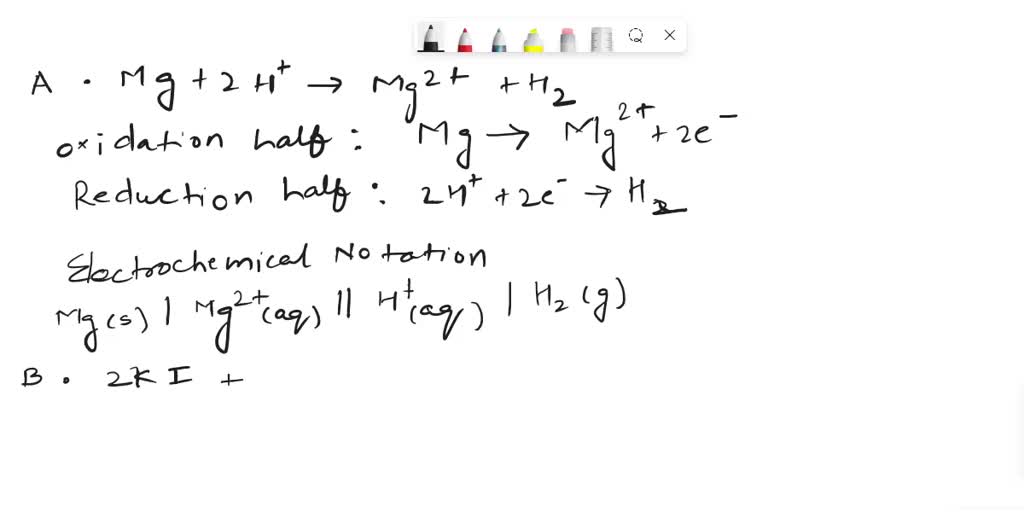 A . Mg + 2 H⁺ → Mg²⁺ + H₂
oxidation half : Mg → Mg²⁺ + 2e⁻
Reduction half : 2H⁺ + 2e⁻ → H₂
Electrochemical Notation
Mg(s) | Mg²⁺(aq) || H⁺(aq) | H₂(g)
B . 2KI +